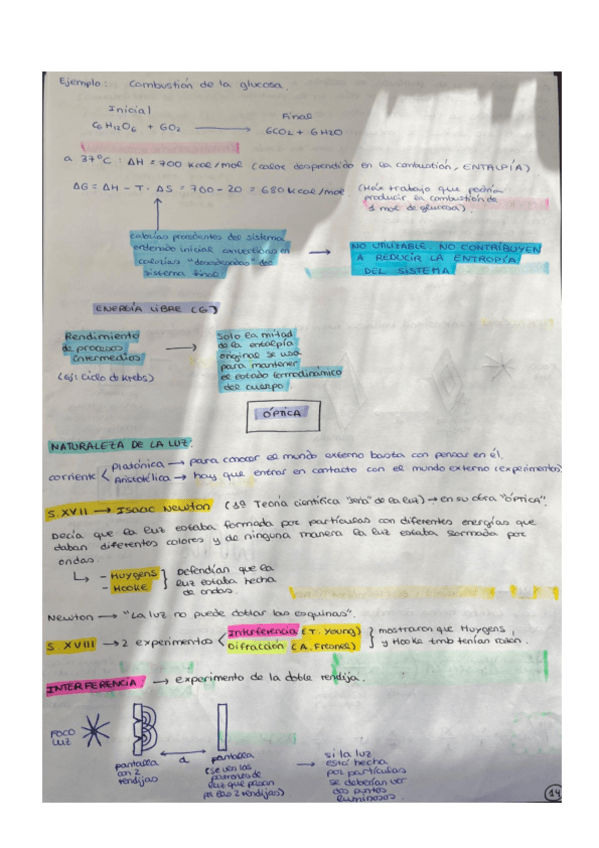 Ejemplo: Combustión de la glucosa.
Inicial
Final
C6H12O6 + 6O2 ⟶ 6CO2 + 6H2O
a 37°C: ΔH = 700 kcal/mol (calor desprendido en la combustión, ENTALPÍA)
ΔG = ΔH - T. ΔS = 700 - 20 = 680 kcal/mol. (Máx trabajo que podría
producir la combustión de
1 mol de glucosa).
calorías procedentes del sistema
ordenado inicial convertidos en
calorías "desordenadas" del
sistema final
→ NO UTILIZABLE. NO CONTRIBUYEN
A REDUCIR LA ENTROPÍA
DEL SISTEMA
ENERGÍA LIBRE (G)
Rendimiento
de procesos
intermedios
(ej: ciclo d krebs)
→ Solo la mitad
de la entalpía
original se usa
para mantener
el estado termodinámico
del cuerpo.
ÓPTICA
NATURALEZA DE LA LUZ.
corriente < Platónica → para conocer el mundo externo basta con pensar en él.
Aristotélica → hay que entrar en contacto con el mundo externo (experimentos)
S. XVII → Isaac Newton (1ª Teoría científica "seria" de la luz) → en su obra "ÓPTICA".
Decía que la luz estaba formada por partículas con diferentes energías que
daban diferentes colores y de ninguna manera la luz estaba formada por
ondas.
↳ - Huygens
- Hooke
} Defendían que la
luz estaba hecha
de ondas.
Newton → "La luz no puede doblar las esquinas".
S. XVIII → 2 experimentos < Interferencia (T. Young)
Difracción (A. Fresnel)
} mostraron que Huygens
y Hooke tmb tenían razón.
INTERFERENCIA. → experimento de la doble rendija.
FOCO
LUZ
pantalla
con 2
rendijas
d
pantalla
(se ven los
patrones de
luz que pasan
por las 2 rendijas)
→ si la luz
está hecha
por partículas
se deberían ver
dos puntos
luminosos.
14